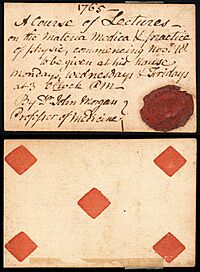 1765—
A Course of Lectures—
on the Materia Medica & practice
of physic, commencing Nov. 18
to be given at his house
Mondays, Wednesdays & Fridays
at 3 Clock PM—
By Dr. John Morgan
Professor of Medicine